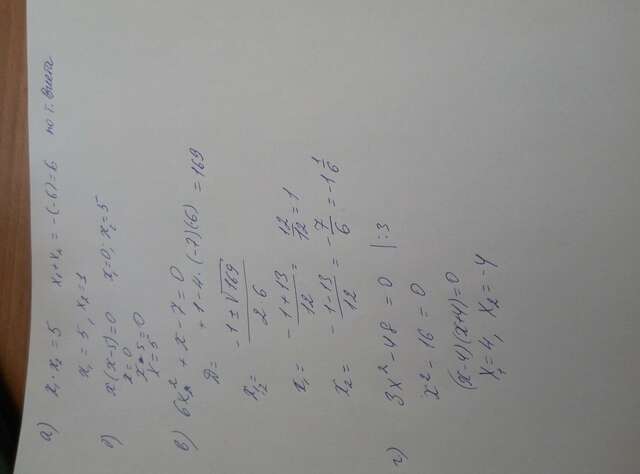 а) x₁ x₂ = 5 x₁+x₂ = -(-6)=6 по т. Виета
x₁ = 5, x₂=1
б) x(x-5)=0 x₁=0; x₂=5
x=0
x-5=0
x=5
в) 6x² + x - 7 = 0
D= +1-4·(-7)(6) = 169
x₁,₂ = -1±√169 / 2 6
x₁ = -1+13 / 12 = 12/12 = 1
x₂ = -1-13 / 12 = -7/6 = -1 1/6
г) 3x² - 48 = 0 | :3
x² - 16 = 0
(x-4)(x+4)=0
x₁=4, x₂=-4